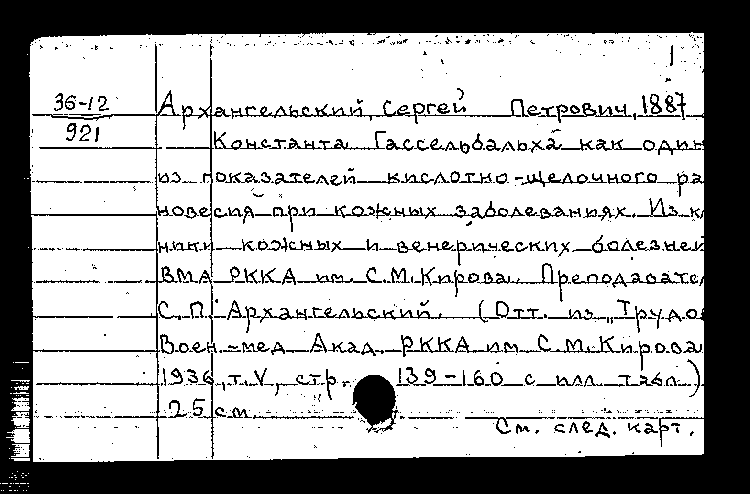 1
36-12
921
Архангельский, Сергей Петрович, 1887
Константа Гассельбальха как один
из показателей кислотно-щелочного ра
новесия при кожных заболеваниях. Из к
ники кожных и венерических болезней
ВМА РККА им. С.М.Кирова. Преподавател
С.П. Архангельский. (Отт. из „Трудов
Воен.-мед Акад. РККА им С.М.Кирова
1936, т.V, стр. 139-160 с илл табл.)
25 см.
См. след. карт.